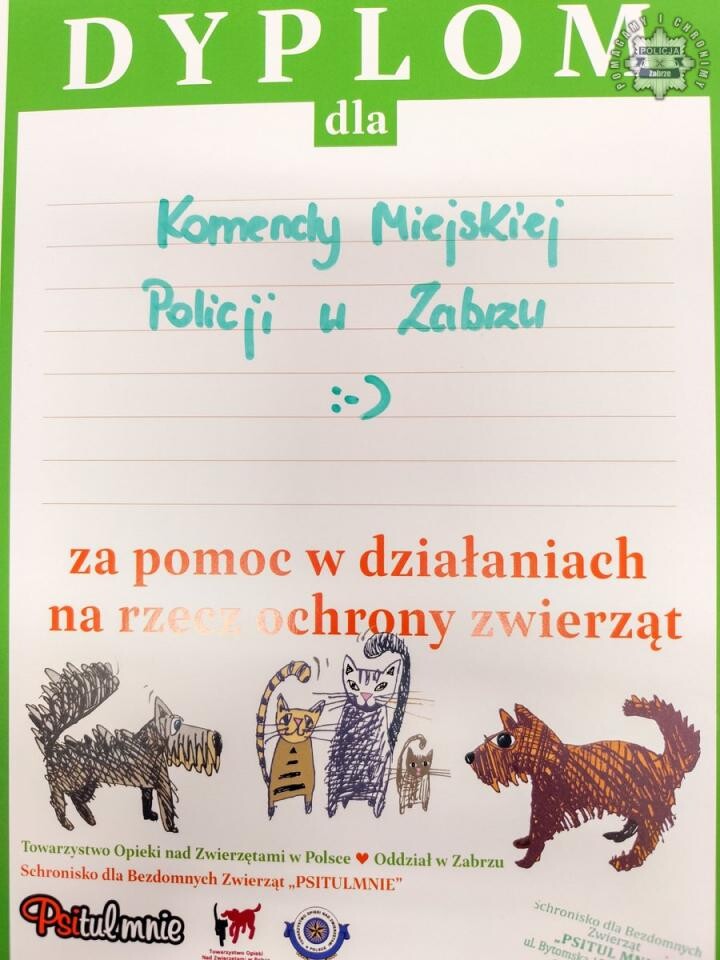 DYPLOM
POMAGAMY I CHRONIMY
POLICJA
Zabrze
dla
Komendy Miejskiej
Policji w Zabrzu
:-)
za pomoc w działaniach
na rzecz ochrony zwierząt
Towarzystwo Opieki nad Zwierzętami w Polsce ♥ Oddział w Zabrzu
Schronisko dla Bezdomnych Zwierząt „PSITULMNIE”
Psitul mnie
Towarzystwo Opieki
Nad Zwierzętami w Polsce
TOWARZYSTWO OPIEKI NAD
Schronisko dla Bezdomnych
Zwierząt
„PSITUL
ul. Bytomska